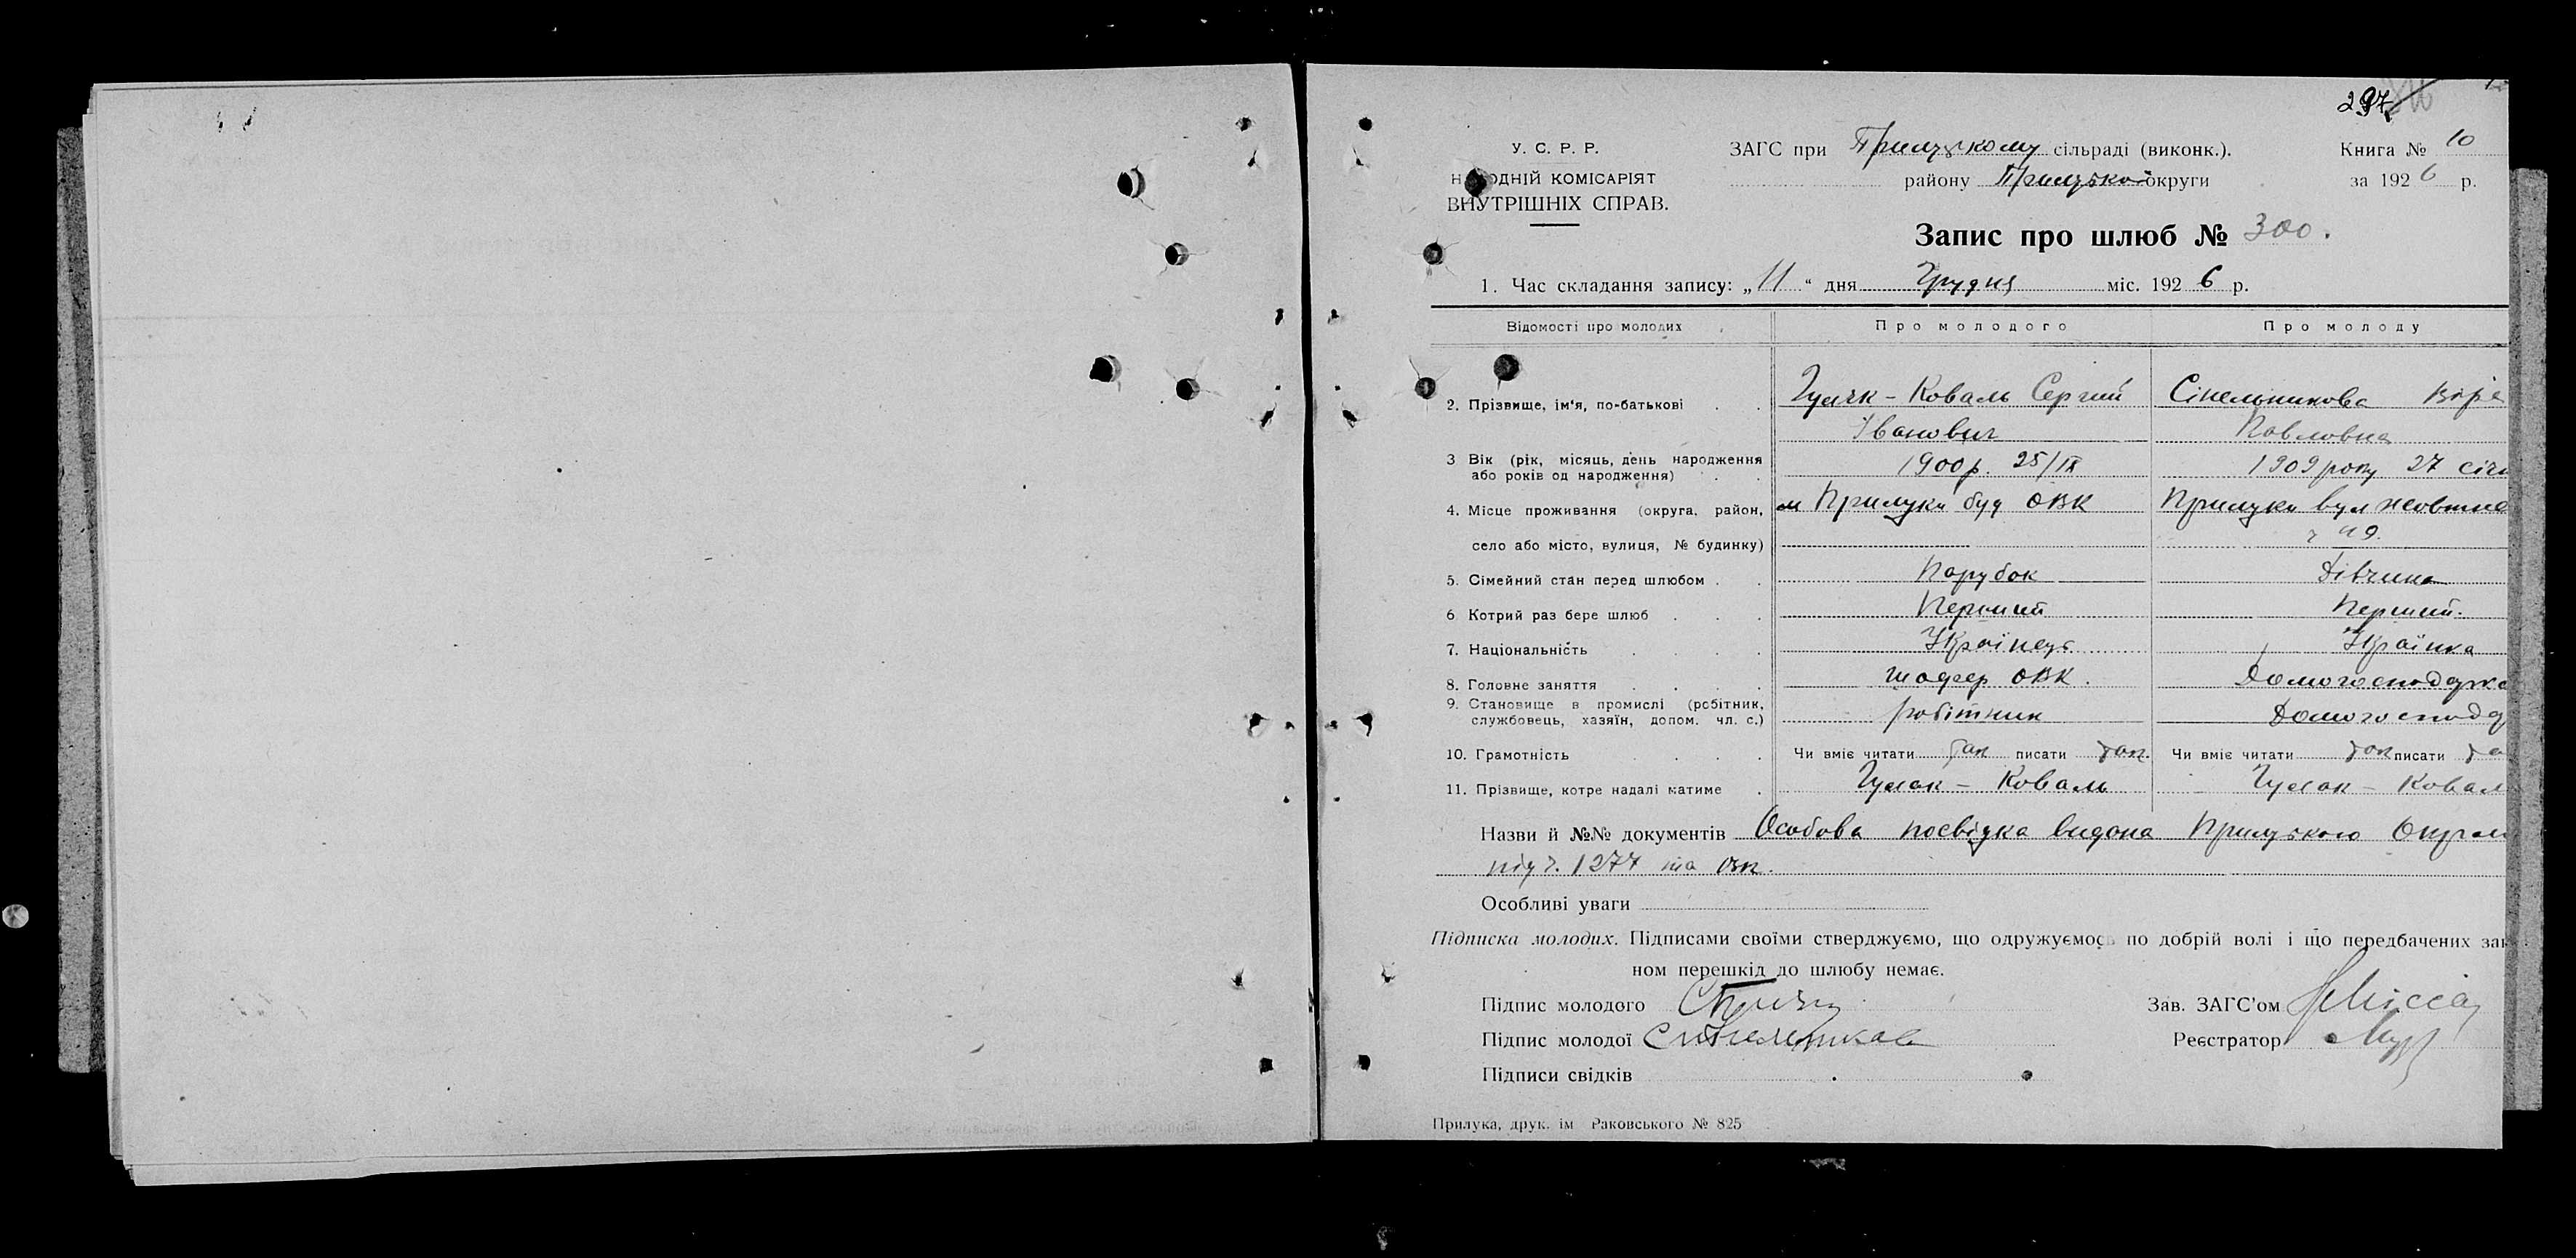 297
У. С. Р. Р.
НАРОДНІЙ КОМІСАРІЯТ
ВНУТРІШНІХ СПРАВ.
ЗАГС при Прилуцкому сільраді (виконк.).
району Прилуцької округи
Книга № 10
за 1926 р.
Запис про шлюб № 300.
1. Час складання запису: „11“ дня Грудня міс. 1926 р.
Відомості про молодих Про молодого Про молоду
2. Прізвище, ім'я, по-батькові Гулак - Коваль Сергий Сінельникова Віра
Іванович Павловна
3 Вік (рік, місяць, день народження або років од народження) 1900р. 25/IX 1909 року 27 січн
4. Місце проживання (округа, район, м Прилуки буд ОВК Прилуки вул Жовтне
село або місто, вулиця, № будинку) 49.
5. Сімейний стан перед шлюбом Парубок Дівчина
6 Котрий раз бере шлюб Перший Перший.
7. Національність Українець Українка
8. Головне заняття шофер ОВК. Домогосподарка
9. Становище в промислі (робітник, службовець, хазяїн, допом. чл. с.) робітник Домогоспода
10. Грамотність Чи вміє читати так писати так. Чи вміє читати так писати та
11. Прізвище, котре надалі матиме Гулак - Коваль Гулак - Ковал
Назви й №№ документів Особова посвідка видана Прилуцького Окром
під ч. 1277 та
Особливі уваги
Підписка молодих. Підписами своїми стверджуємо, що одружуємось по добрій волі і що передбачених зак
ном перешкід до шлюбу немає.
Підпис молодого
Зав. ЗАГС'ом
Підпис молодої Синельникова
Реєстратор
Підписи свідків
Прилука, друк. ім Раковського № 825